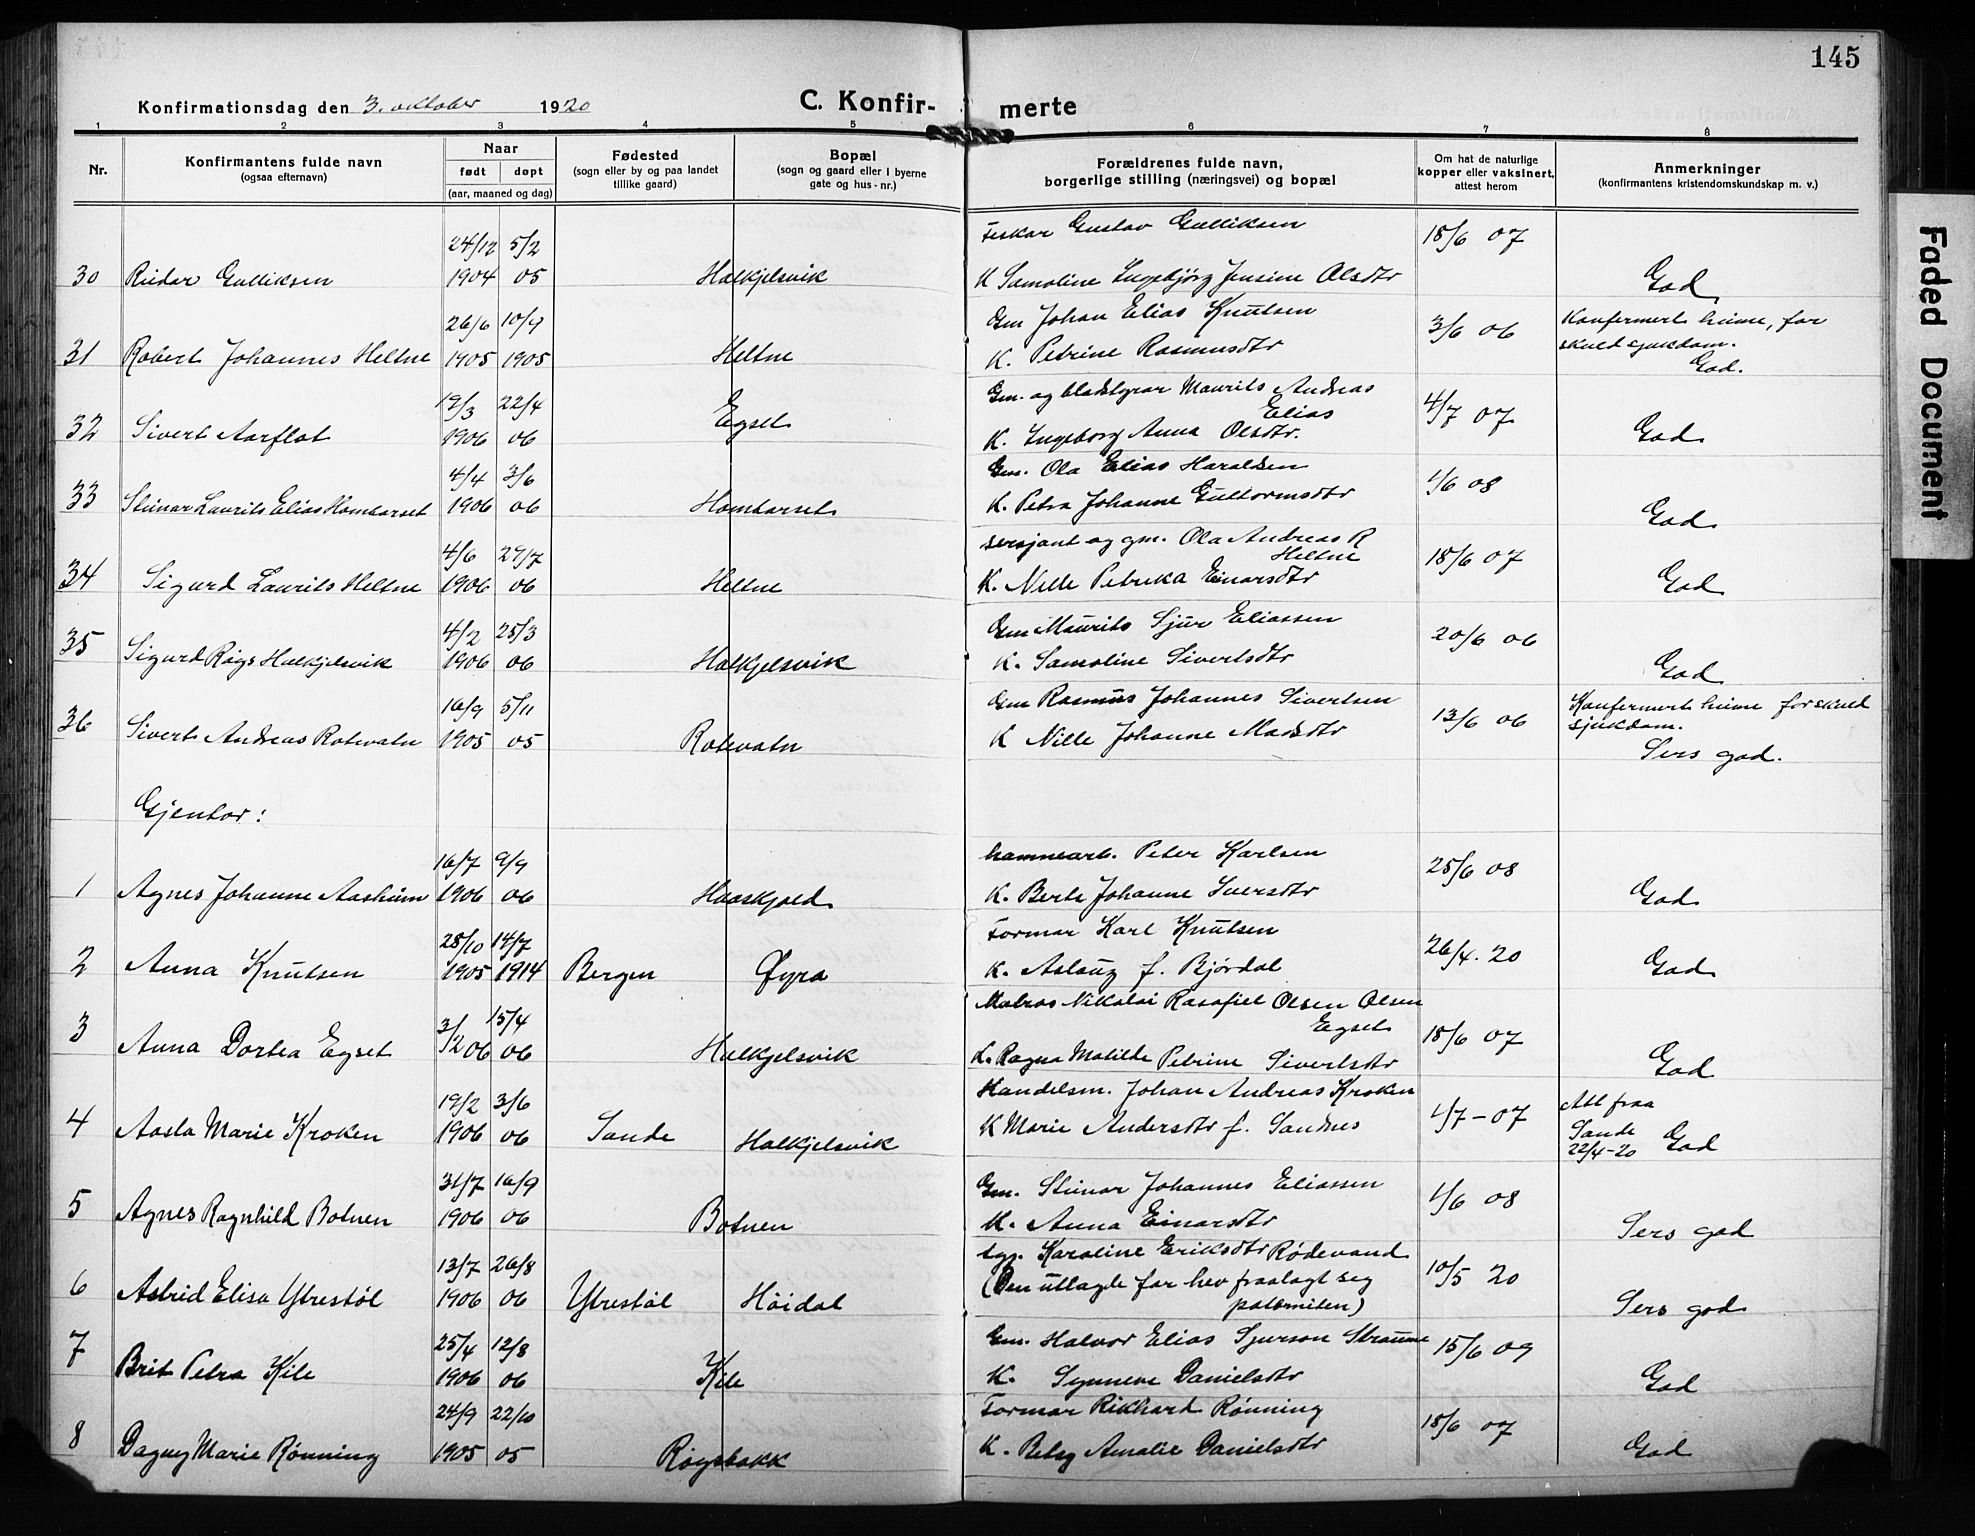 145
Konfirmationsdag den 3. oktober 1920
C. Konfir- merte
1 2 3 4 5 6 7 8
Nr.
Konfirmantens fulde navn
(ogsaa efternavn)
Naar
født døpt
(aar, maaned og dag)
Fødested
(sogn eller by og paa landet
tillike gaard)
Bopæl
(sogn og gaard eller i byerne
gate og hus-nr.)
Forældrenes fulde navn,
borgerlige stilling (næringsvei) og bopæl
Om hat de naturlige
kopper eller vaksinert,
attest herom
Anmerkninger
(konfirmantens kristendomskundskap m. v.)
24/12 5/2 Feskar Gustav Gulliksen 18/6 07
30 Reidar Gulliksen 1904 05 Halkjelsvik K Samoline Ingebjørg Jensine Olsdtr God
26/6 10/9 Gm Johan Elias Knutsen 3/6 06 Konfermert heime, for
31 Robert Johannes Heltne 1905 1905 Heltne K. Petrine Rasmusdtr skuld sjukdom.
God.
19/3 22/4 Gm. og bladstyrar Maurits Andreas 4/7 07
Elias
32 Sivert Aarflot 1906 06 Egset K. Ingeborg Anna Olsdtr. God
4/4 3/6 Gm. Ola Elias Haraldsen 1/6 08
33 Steinar Laurits Elias Hombarset 1906 06 Hombarset K. Petra Johanne Guttormsdtr God
4/6 29/7 sersjant og gm. Ola Andreas R 18/6 07
Heltne
34 Sigurd Laurits Heltne 1906 06 Heltne K. Nille Petrika Einarsdtr God
4/2 25/3 Gm Maurits Sjur Eliassen 20/6 06
35 Sigurd Røys Halkjelsvik 1906 06 Halkjelsvik K. Samoline Sivertsdtr God
16/9 5/11 Gm Rasmus Johannes Sivertsen 13/6 06 Konfermert heime for skuld
36 Sivert Andreas Rotevatn 1905 05 Rotevatn K Nille Johanne Madsdtr sjukdom.
Sers god.
Gjentor:
16/7 9/9 hamnearb. Peter Karlsen 25/6 08
1 Agnes Johanne Aasheim 1906 06 Haaskjold K. Berte Johanne Iversdtr God
28/10 14/7 Formar Karl Knutsen 26/4. 20
2 Anna Knutsen 1905 1914 Bergen Øyra K. Aslaug f. Bjørdal God
3/ 15/4 Matros Nikolai Rasafiel Olsen Olsen 18/6 07
Egset
3 Anna Dortea Egset /2 06 06 Halkjelsvik K. Ragna Matilde Petrine Sivertsdtr God
19/2 3/6 Handelsm. Johan Andreas Kroken 1/7-07 Att fraa
4 Aasta Marie Kroken 1906 06 Sande Halkjelsvik K Marie Andersdtr f. Sandnes Sande
22/4-20 God
31/7 16/9 Gm. Steinar Johannes Eliassen 1/6 08
5 Agnes Ragnhild Botnen 1906 06 Botnen K. Anna Einarsdtr Sers god
13/7 26/8 Karoline Eriksdtr Rødevand 10/5 20
6 Astrid Elisa Ytrestøl 1906 06 Ytrestøl Høidal (Den utlagde far hev fraalagt seg
paterniteten) Sers god
25/4 12/8 Gm. Halvor Elias Sjurson Straume 15/6 09
7 Brit Petra Kile 1906 06 Kile K. Synneve Danielsdtr God
24/9 22/10 Formar Rikhard Rønning 18/6 07
8 Dagny Marie Rønning 1905 05 Røysbakk K. Betsy Amalie Danielsdtr God
Faded Document